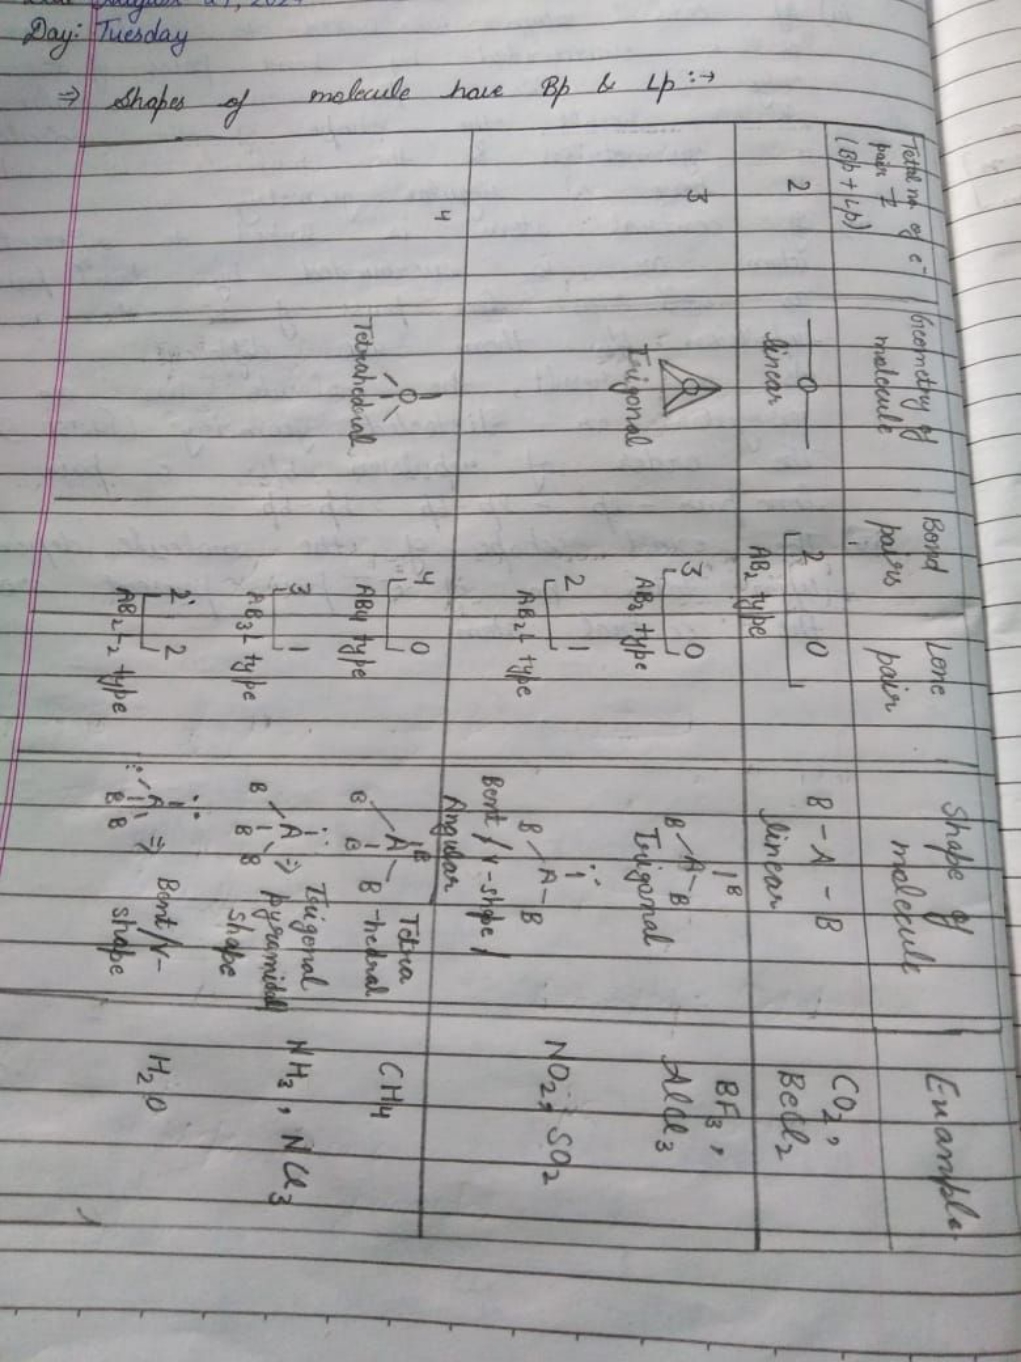 Day: Tuesday
⇒ Shapes of molecule have Bp & Lp :→
Total no. of e⁻
pair
(Bp + Lp)
Geometry of
molecule
Bond
pairs
Lone
pair
Shape of
molecule
Example
2
linear
2 0
AB₂ type
B - A - B
linear
CO₂,
BeCl₂
3
Trigonal
3 0
AB₃ type
B
B A - B
Trigonal
BF₃,
AlCl₃
2 1
AB₂L type
B A - B
Bent / V-shape /
Angular
NO₂, SO₂
4
Tetrahedral
4 0
AB₄ type
B
B A B
B
Tetra
-hedral
CH₄
3 1
AB₃L type
B A B
B
⇒ Trigonal
pyramidal
shape
NH₃, NCl₃
2 2
AB₂L₂ type
A
B B
⇒ Bent/V-
shape
H₂O